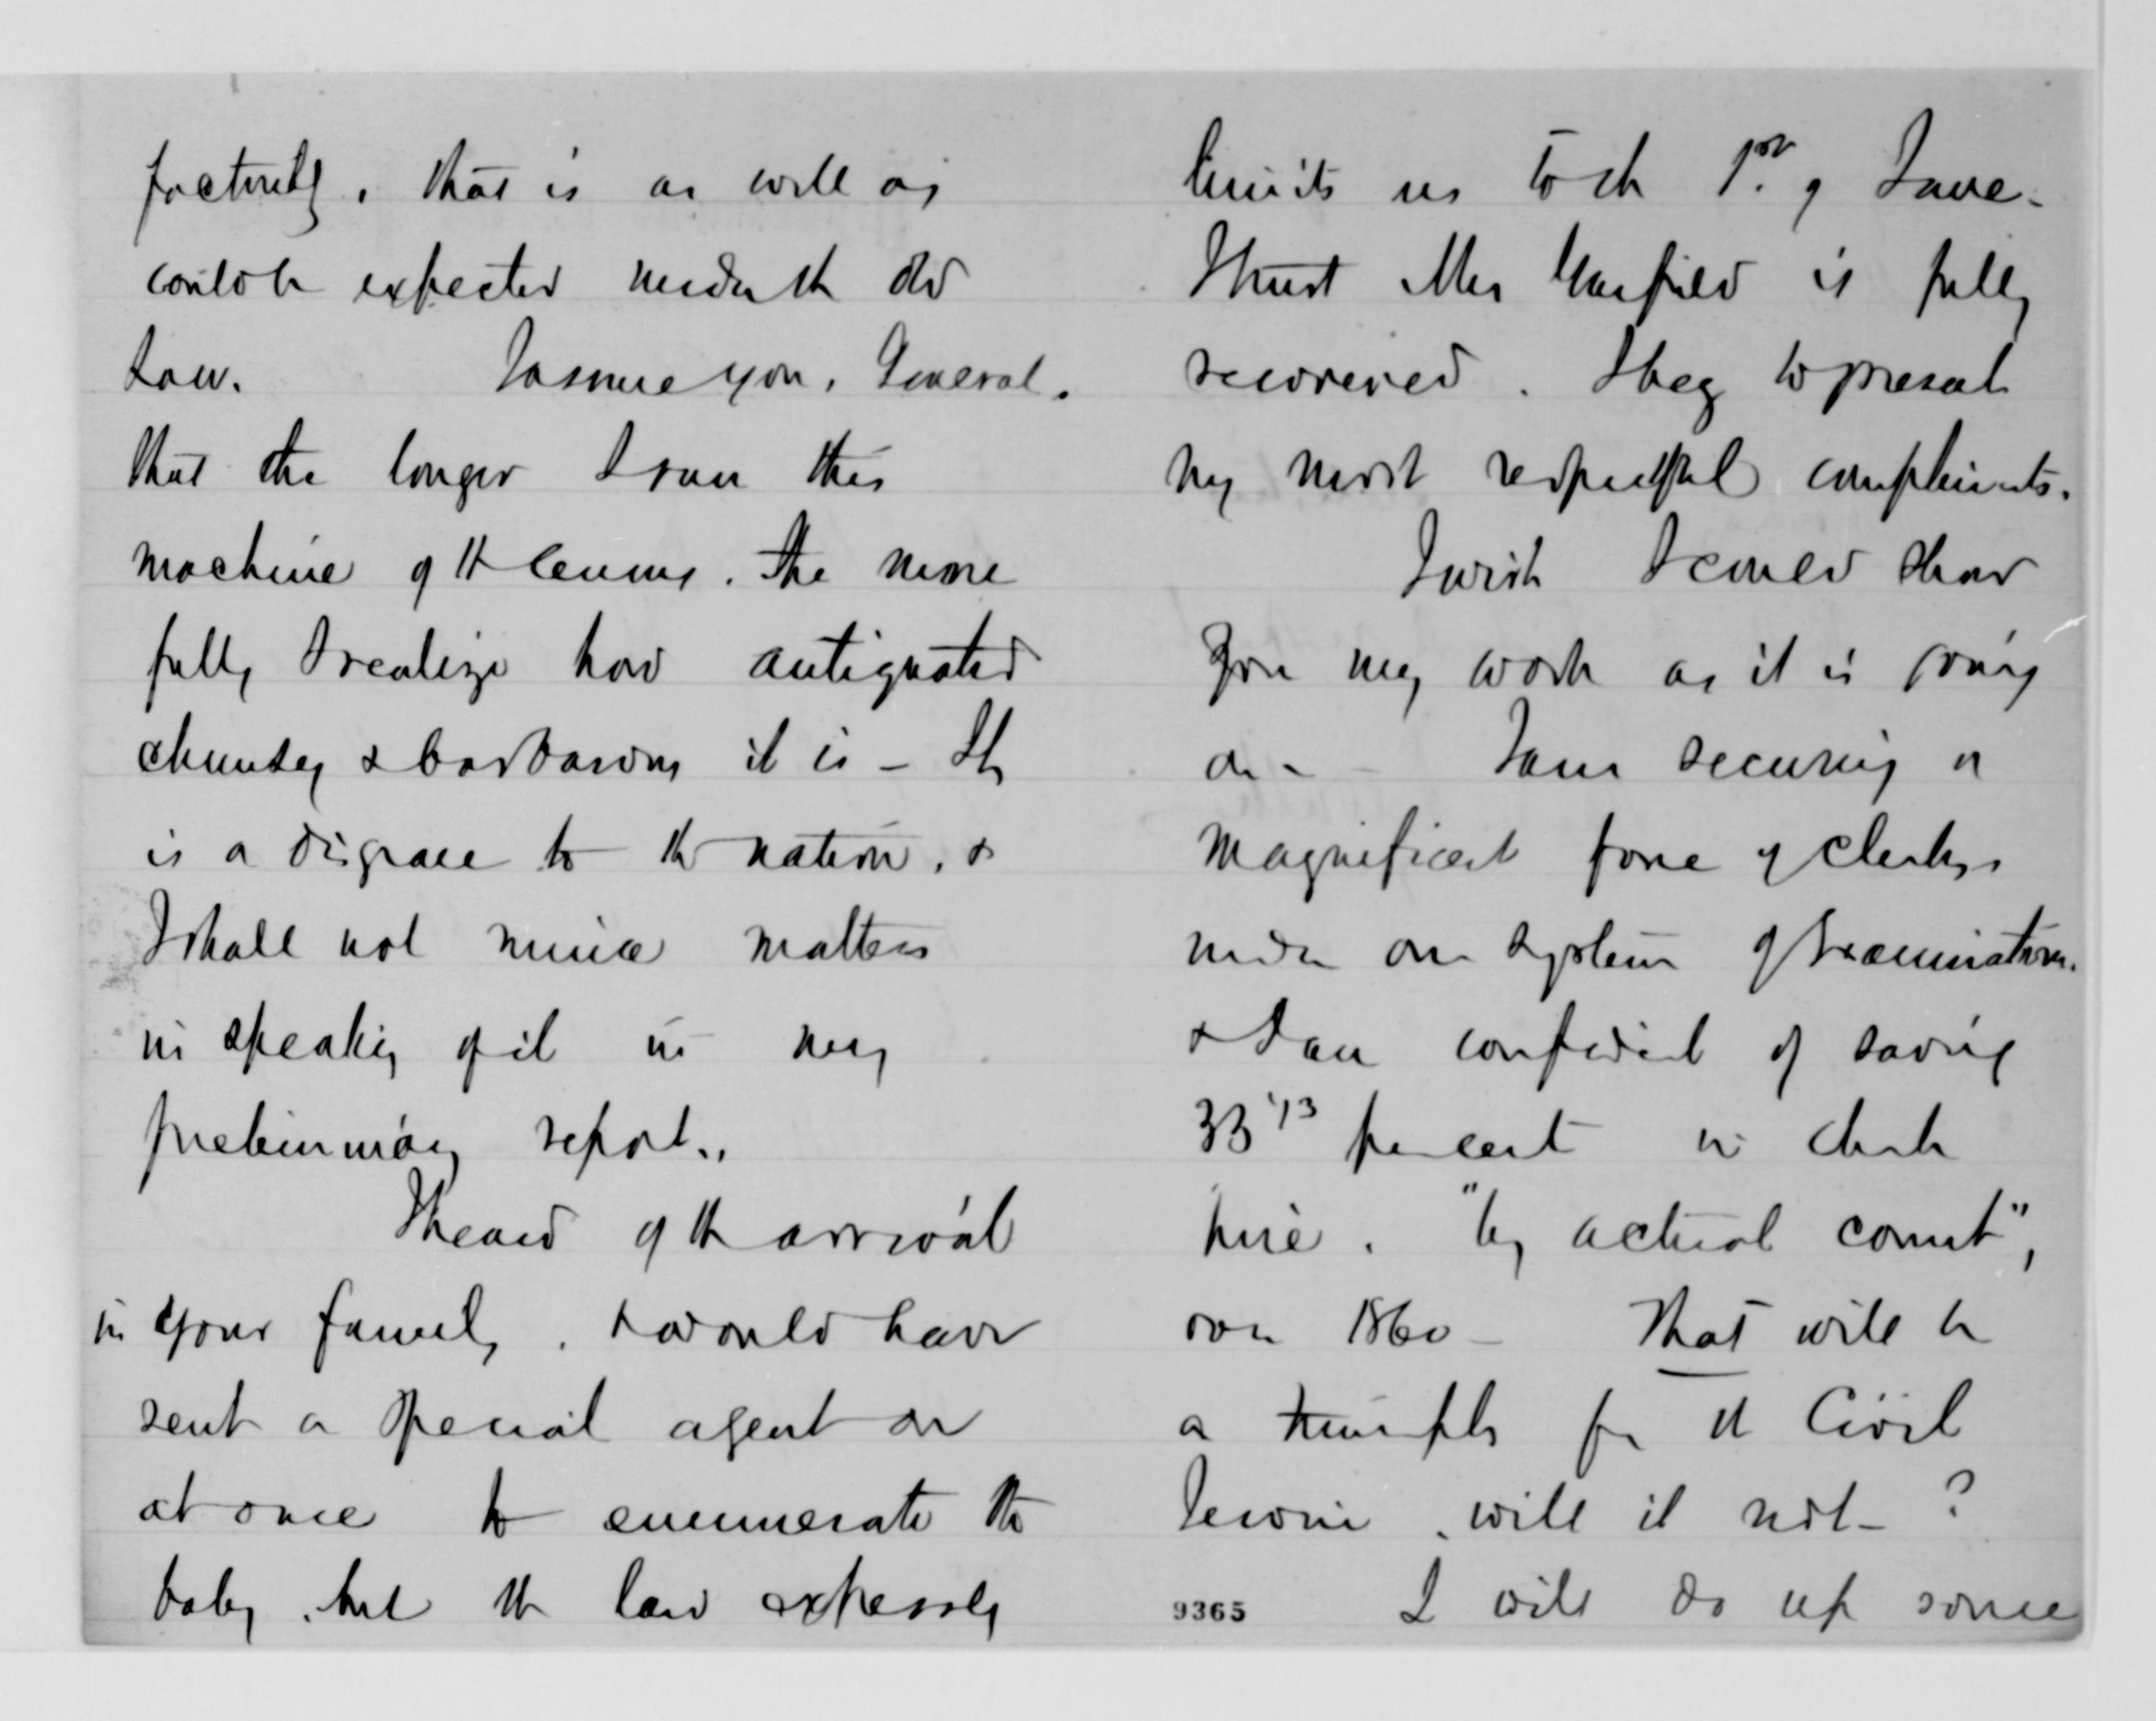 factorily, that is as well as
could be expected under the old
law. I assure you, General,
that the longer I run this
machine of the Census, the more
fully I realize how antiquated
clumsy & barbarous it is – It
is a disgrace to the nation, &
I shall not mince matters
in speaking of it in my
preliminary report.
I heard of the arrival
in your family. I would have
sent a special agent on
at once to enumerate the
baby, but the law expressly
limits us to the 1st of June –
I trust Mrs Garfield is fully
recovered. I beg to present
my most respectful compliments.
I wish I could show
you my work as it is going
on – I am securing a
magnificent force of clerks,
under our system of Examinations.
& I am confident of saving
33 1/3 per cent in clerk
hire, "by actual count",
over 1860 – That will be
a triumph for the Civil
Service, will it not – ?
9365 I will do up some